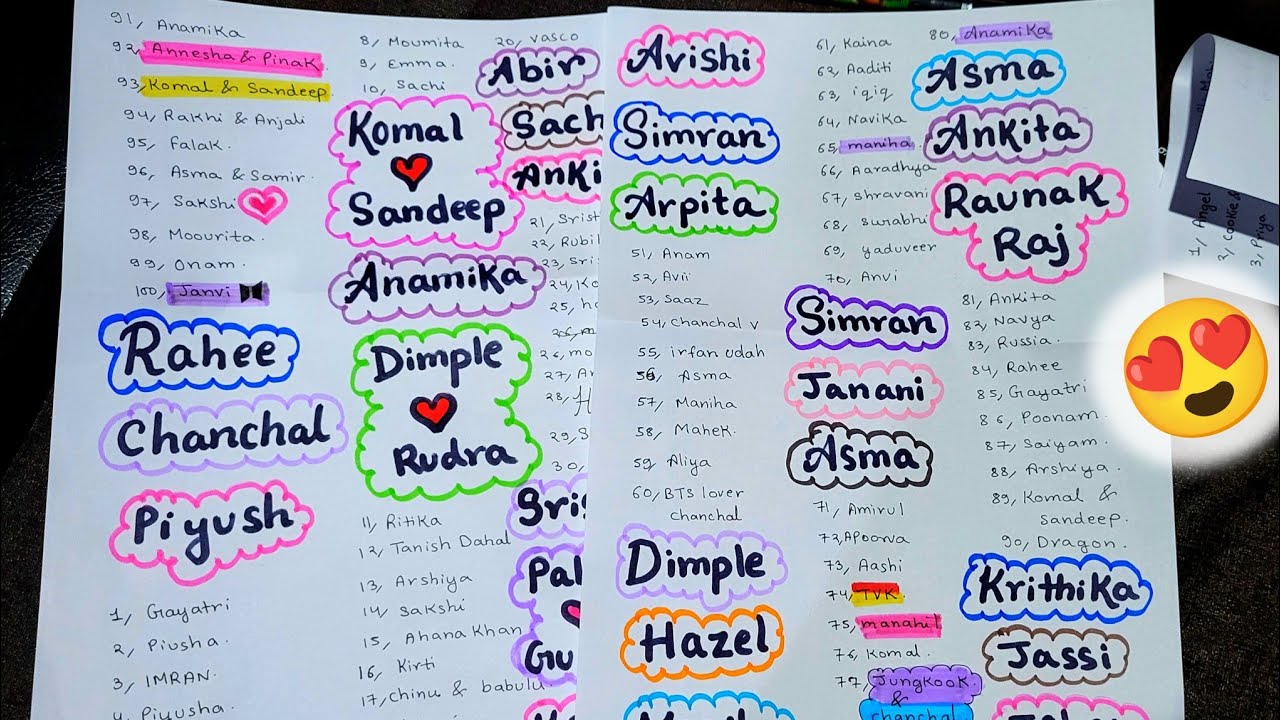 91, Anamika
92, Annesha & Pinak
93, Komal & Sandeep
94, Rakhi & Anjali
95, Falak.
96, Asma & Samir
97, Sakshi
98, Moourita.
99, Onam.
100, Janvi
Rahee
Chanchal
Piyush
1, Gayatri
2, Piusha
3, IMRAN.
4, Piyusha.
8, Moumita
9, Emma.
10, Sachi
Komal
Sandeep
Anamika
Dimple
Rudra
11, Ritika
12, Tanish Dahal
13, Arshiya
14, Sakshi
15, Ahana Khan
16, Kirti
17, Chinu & babulu
20, Vasco
Abir
Sach
Anki
21, Srist
22, Rubil
23, Sri
24, Ko
26, mo
27, An
28, H
29, S
30,
Sris
Pal
Gu
Avishi
Simran
Arpita
51, Anam
52, Avii
53, Saaz
54, Chanchal v
55, irfan udah
56, Asma
57, Maniha
58, Mahek.
59, Aliya
60, BTS lover
chanchal
Dimple
Hazel
61, Kaina
62, Aaditi
63, iqiq
64, Navika
65, maniha
66, Aaradhya
67, Shravani
68, Surabhi
69, yaduveer
70, Anvi
Simran
Janani
Asma
71, Amirul
72, Apoorva
73, Aashi
74, TVK
75, manahil
76, Komal.
77, Jungkook
&
chanchal
80, Anamika
Asma
Ankita
Raunak
Raj
81, Ankita
82, Navya
83, Russia.
84, Rahee
85, Gayatri
86, Poonam.
87, Saiyam.
88, Arshiya.
89, Komal &
Sandeep.
90, Dragon.
Krithika
Jassi
1, Angel
2, Cookie
3, Priya